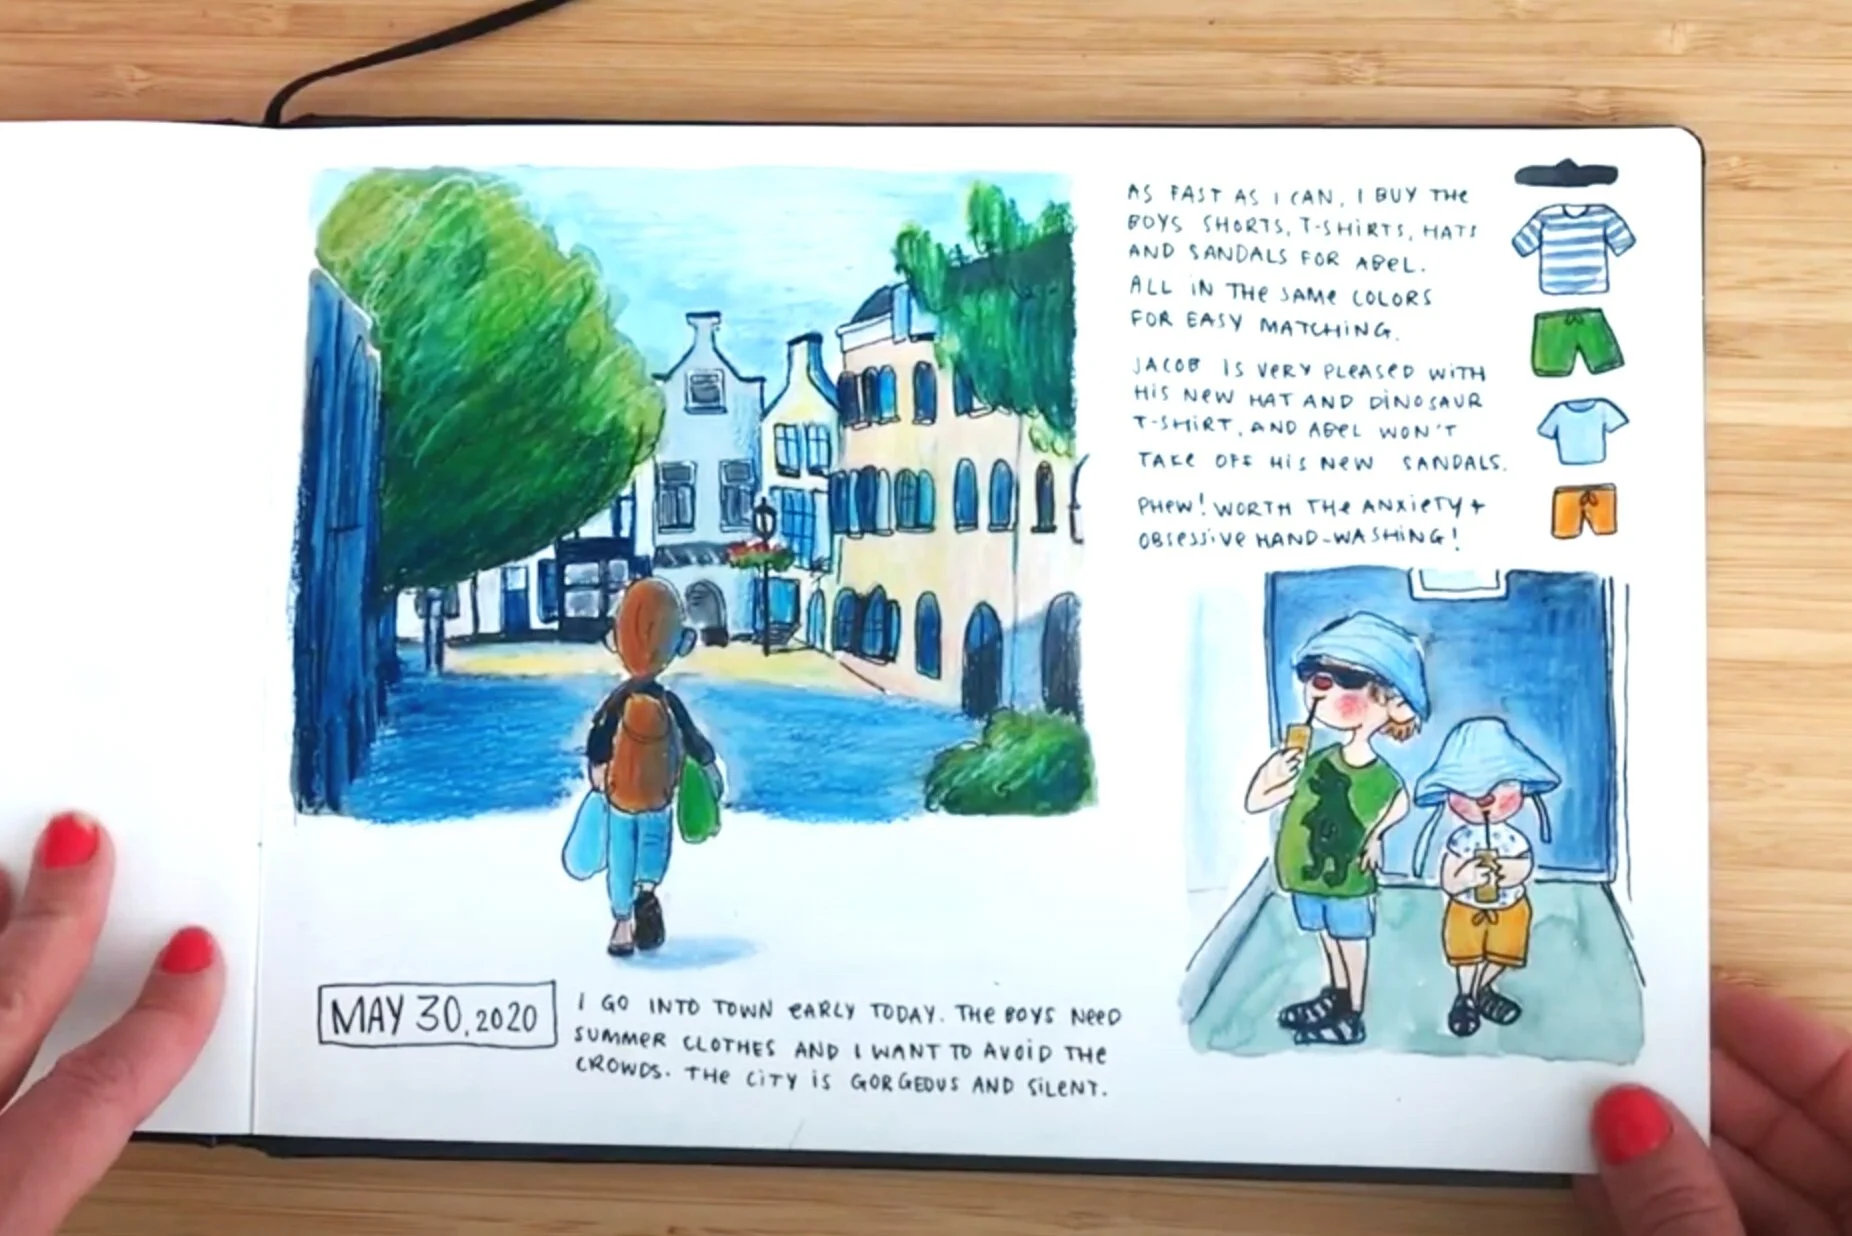 MAY 30, 2020
I GO INTO TOWN EARLY TODAY. THE BOYS NEED
SUMMER CLOTHES AND I WANT TO AVOID THE
CROWDS. THE CITY IS GORGEOUS AND SILENT.
AS FAST AS I CAN, I BUY THE
BOYS SHORTS, T-SHIRTS, HATS
AND SANDALS FOR ABEL.
ALL IN THE SAME COLORS
FOR EASY MATCHING.
JACOB IS VERY PLEASED WITH
HIS NEW HAT AND DINOSAUR
T-SHIRT, AND ABEL WON'T
TAKE OFF HIS NEW SANDALS.
PHEW! WORTH THE ANXIETY +
OBSESSIVE HAND-WASHING!